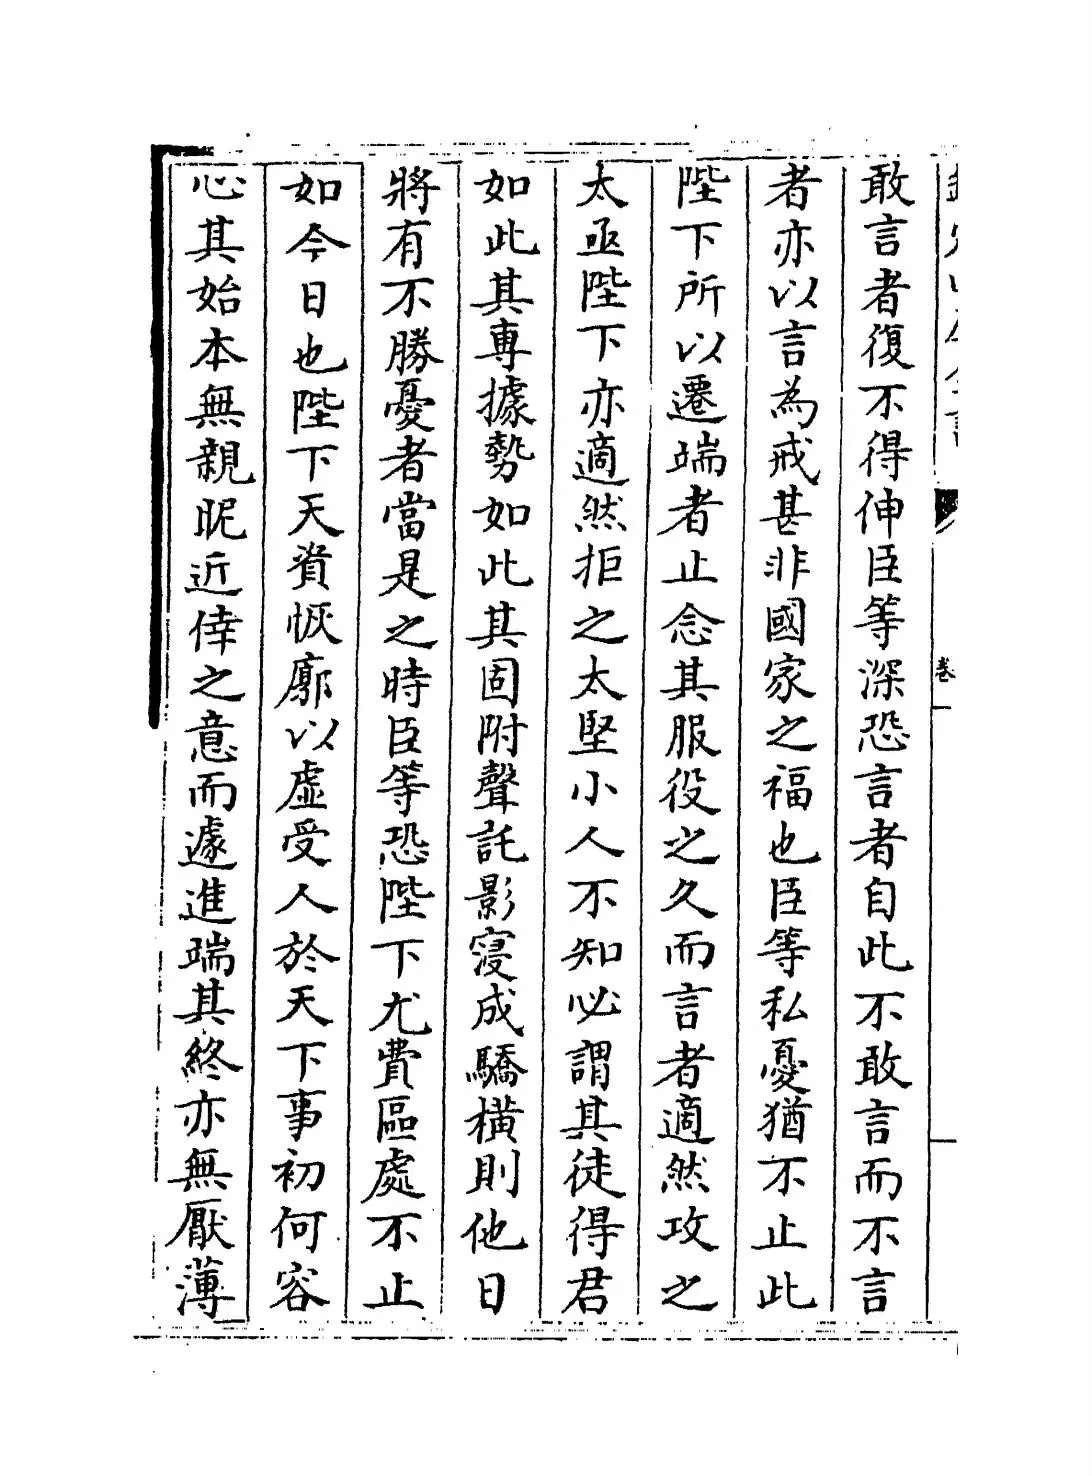 敢言者復不得伸臣等深恐言者自此不敢言而不言
者亦以言為戒甚非國家之福也臣等私憂猶不止此
陛下所以遷端者止念其服役之久而言者適然攻之
太亟陛下亦適然拒之太堅小人不知必謂其徒得君
如此其專據勢如此其固附聲託影寖成驕橫則他日
將有不勝憂者當是之時臣等恐陛下尤費區處不止
如今日也陛下天資恢廓以虛受人於天下事初何容
心其始本無親昵近倖之意而遽進端其終亦無厭薄
卷